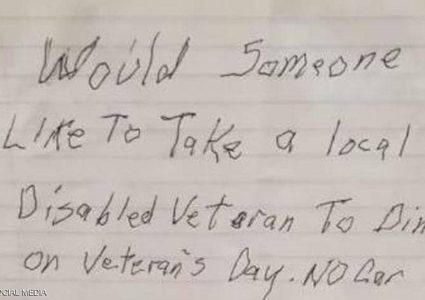 Would Someone
Like To Take a local
Disabled Veteran To Din
on Veteran's Day. NO Car
CIAL MEDIA